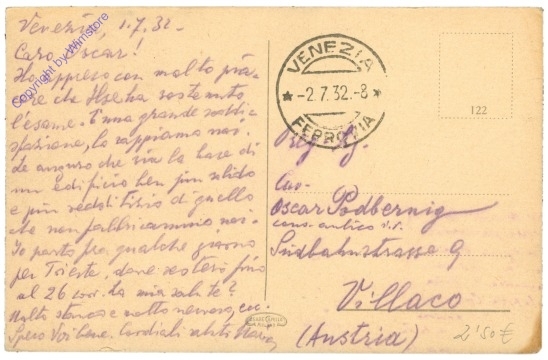 Venezia, 1.7.32.
Caro Oscar!
Ho appreso con molto pia-
cere che Ilse ha sostenuto
l'esame. È una grande soddi-
sfazione, lo sappiamo noi.
Le auguro che sia la base di
un edificio ben più solido
e più redditizio di quello
che non fabbricammo noi.
Io parto fra qualche giorno
per Trieste, dove resterò fino
al 26 corr. La mia salute?
Molto stanco e molto nervoso, ecc.
Spero Voi bene. Cordiali saluti
Copyright by Wimstore
VENEZIA
* -2.7.32.-8 *
FERROVIA
122
Preg. Sig.
Cav.
Oscar Podbernig
Südbahnstrasse 9
Villaco
(Austria)
2'50€